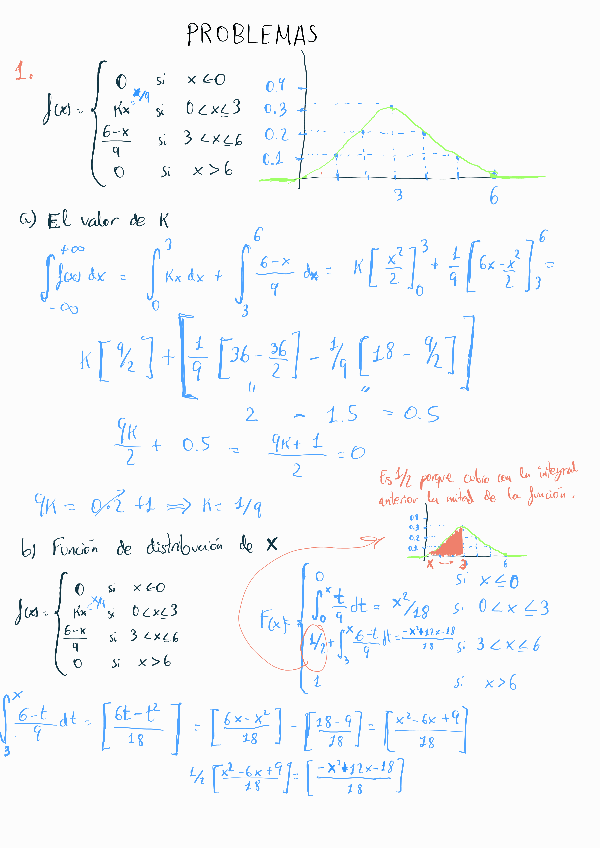 PROBLEMAS
1.
f(x) = { 0 si x<0
Kx x/9 si 0<x≤3
6-x/9 si 3<x≤6
0 si x>6
0.4
0.3
0.2
0.1
3 6
a) El valor de K
∫_{-∞}^{+∞} f(x) dx = ∫_0^3 Kx dx + ∫_3^6 6-x/9 dx = K[x²/2]_0^3 + 1/9[6x-x²/2]_3^6 =
K[9/2] + [1/9[36-36/2] - 1/9[18-9/2]]
" "
2 - 1.5 = 0.5
9K/2 + 0.5 = 9K+1/2 = 0
Es 1/2 porque cubro con la integral
anterior la mitad de la función.
9K = 0·2 + 1 ⇒ K = 1/9
0.4
0.3
0.2
0.1
x 3 6
b) Función de distribución de X
f(x) = { 0 si x<0
Kx x/9 si 0<x≤3
6-x/9 si 3<x≤6
0 si x>6
F(x) = { 0 si x≤0
∫_0^x t/9 dt = x²/18 si 0<x≤3
1/2 + ∫_3^x 6-t/9 dt = -x²+12x-18/18 si 3<x≤6
1 si x>6
∫_3^x 6-t/9 dt = [6t-t²/18] = [6x-x²/18] - [18-9/18] = [x²-6x+9/18]
1/2 [x²-6x+9/18] = [-x²+12x-18/18]